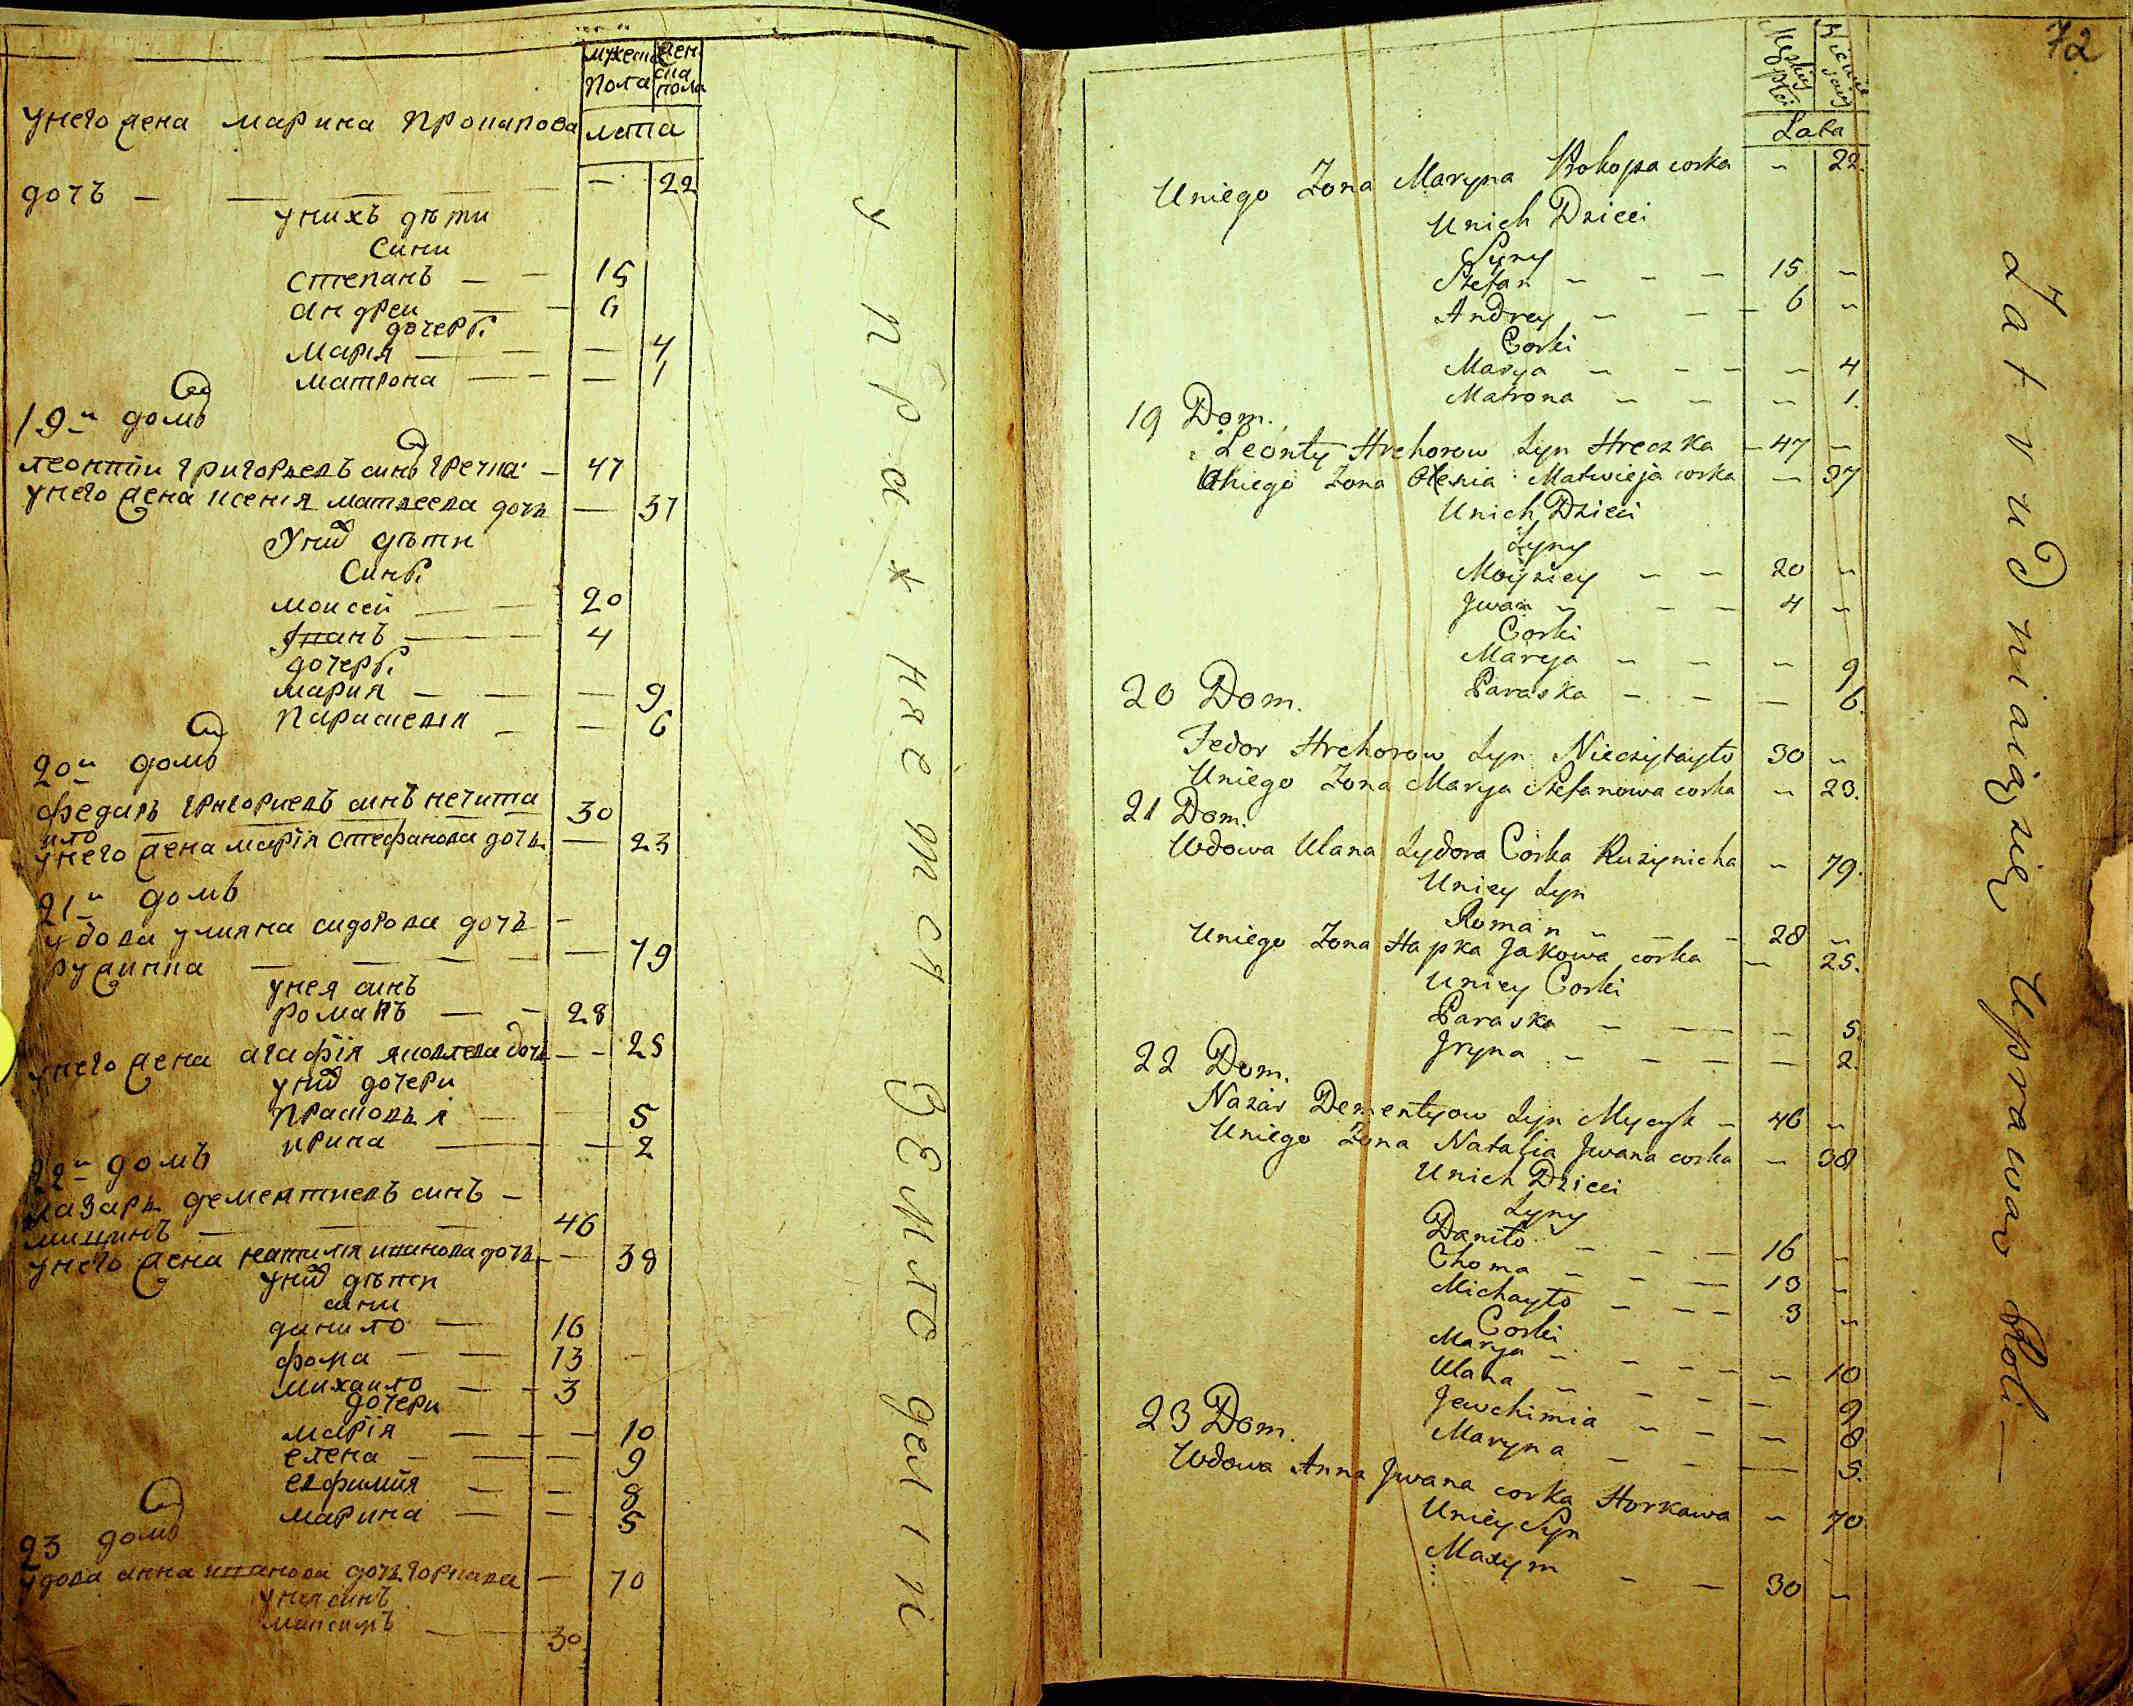 мужеска пола
женска пола
лета
унего жена марина прокапова
дочъ — — — — — 22
унихъ дѣти
Сини
степанъ — — 15
андреи — — 6
дочеры
Мария — — — 4
матрона — — — 1
19й домъ
леонтии григорьевъ синъ гречка — 47
унего жена ксения матвеева дочь — 37
Унихъ дѣти
Сины
моисей — — 20
Иванъ — — 4
дочеры
мария — — — 9
парасковия — — 6
20й домъ
федаръ григориевъ синъ нечита
ило — 30
унего жена марія стефанова дочь — 23
21й домъ
удова улияна сидорова дочь —
ружинка — — — — — 79
унея синъ
романъ — — 28
унего жена агафія яковлева дочь — — 25
унихъ дочери
Прасковья — — 5
ирина — — 2
22й домъ
назаръ дементиевъ синъ —
мицикъ — — — 46
унего жена наталія иванова дочь — 38
унихъ дѣти
сини
данило — 16
фома — — 13
михаило — — 3
дочери
марія — — — 10
елена — — — 9
евфимия — — 8
марина — — 5
23 домъ
удова анна иванова дочь горкава — 70
унея синъ
максимъ — — 30
у пра * няется землѣ деліли
72
Męskiey płci
Żienskiey
Lata
Uniego Żona Maryna Prokopa corka — 22.
Unich Dzieci
Syny
Stefan — — — 15 —
Andrey — — — 6 —
Corki
Marya — — — — 4
Matrona — — — 1.
19 Dom.
Leonty Hrehorow Syn Hreczka — 47 —
Uniego Żona Xenia Matwieja corka — 37
Unich Dzieci
Syny
Moyziey — — 20 —
Jwan — — — 4 —
Corki
Marya — — — 9
Paraska — — — 6.
20 Dom.
Fedor Hrehorow Syn Nieczytayło 30 —
Uniego Żona Marya Stefanowa corka — 23.
21 Dom.
Wdowa Ulana Sydora Corka Rużynicha — 79.
Uniey Syn
Roman — — — 28 —
Uniego Żona Hapka Jakowa corka — 25.
Uniey Corki
Paraska — — — 5.
Jryna — — — — 2.
22 Dom.
Nazar Dementyow Syn Mycyk — 46 —
Uniego Żona Natalia Jwana corka — 38
Unich Dzieci
Syny
Daniło — — — 16 —
Choma — — — 13 —
Michayło — — — 3 —
Corki
Marya — — — — — 10
Ulana — — — — 9
Jewchimia — — — 8
Maryna — — — 5.
23 Dom.
Wdowa Anna Jwana corka Horkawa — 70
Uniey Syn
Maxym — — 30 —
Zatrudniaią się Uprawą Roli —